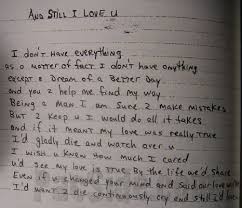 AND STILL I LOVE U
I DON'T HAVE EVERYTHING
AS A MATTER OF FACT I DON'T HAVE ANYTHING
EXCEPT A DREAM OF A BETTER DAY
AND YOU 2 HELP ME FIND MY WAY
BEING A MAN I AM SURE 2 MAKE MISTAKES
BUT 2 KEEP U I WOULD DO ALL IT TAKES
AND IF IT MEANT MY LOVE WAS REALLY TRUE
I'D GLADLY DIE AND WATCH OVER U
I WISH U KNEW HOW MUCH I CARED
U'D SEE MY LOVE IS TRUE BY THE LIFE WE'D SHARE
EVEN IF U CHANGED YOUR MIND AND SAID OUR LOVE
I'D WANT 2 DIE CONTINUOUSLY CRY AND STILL I'D